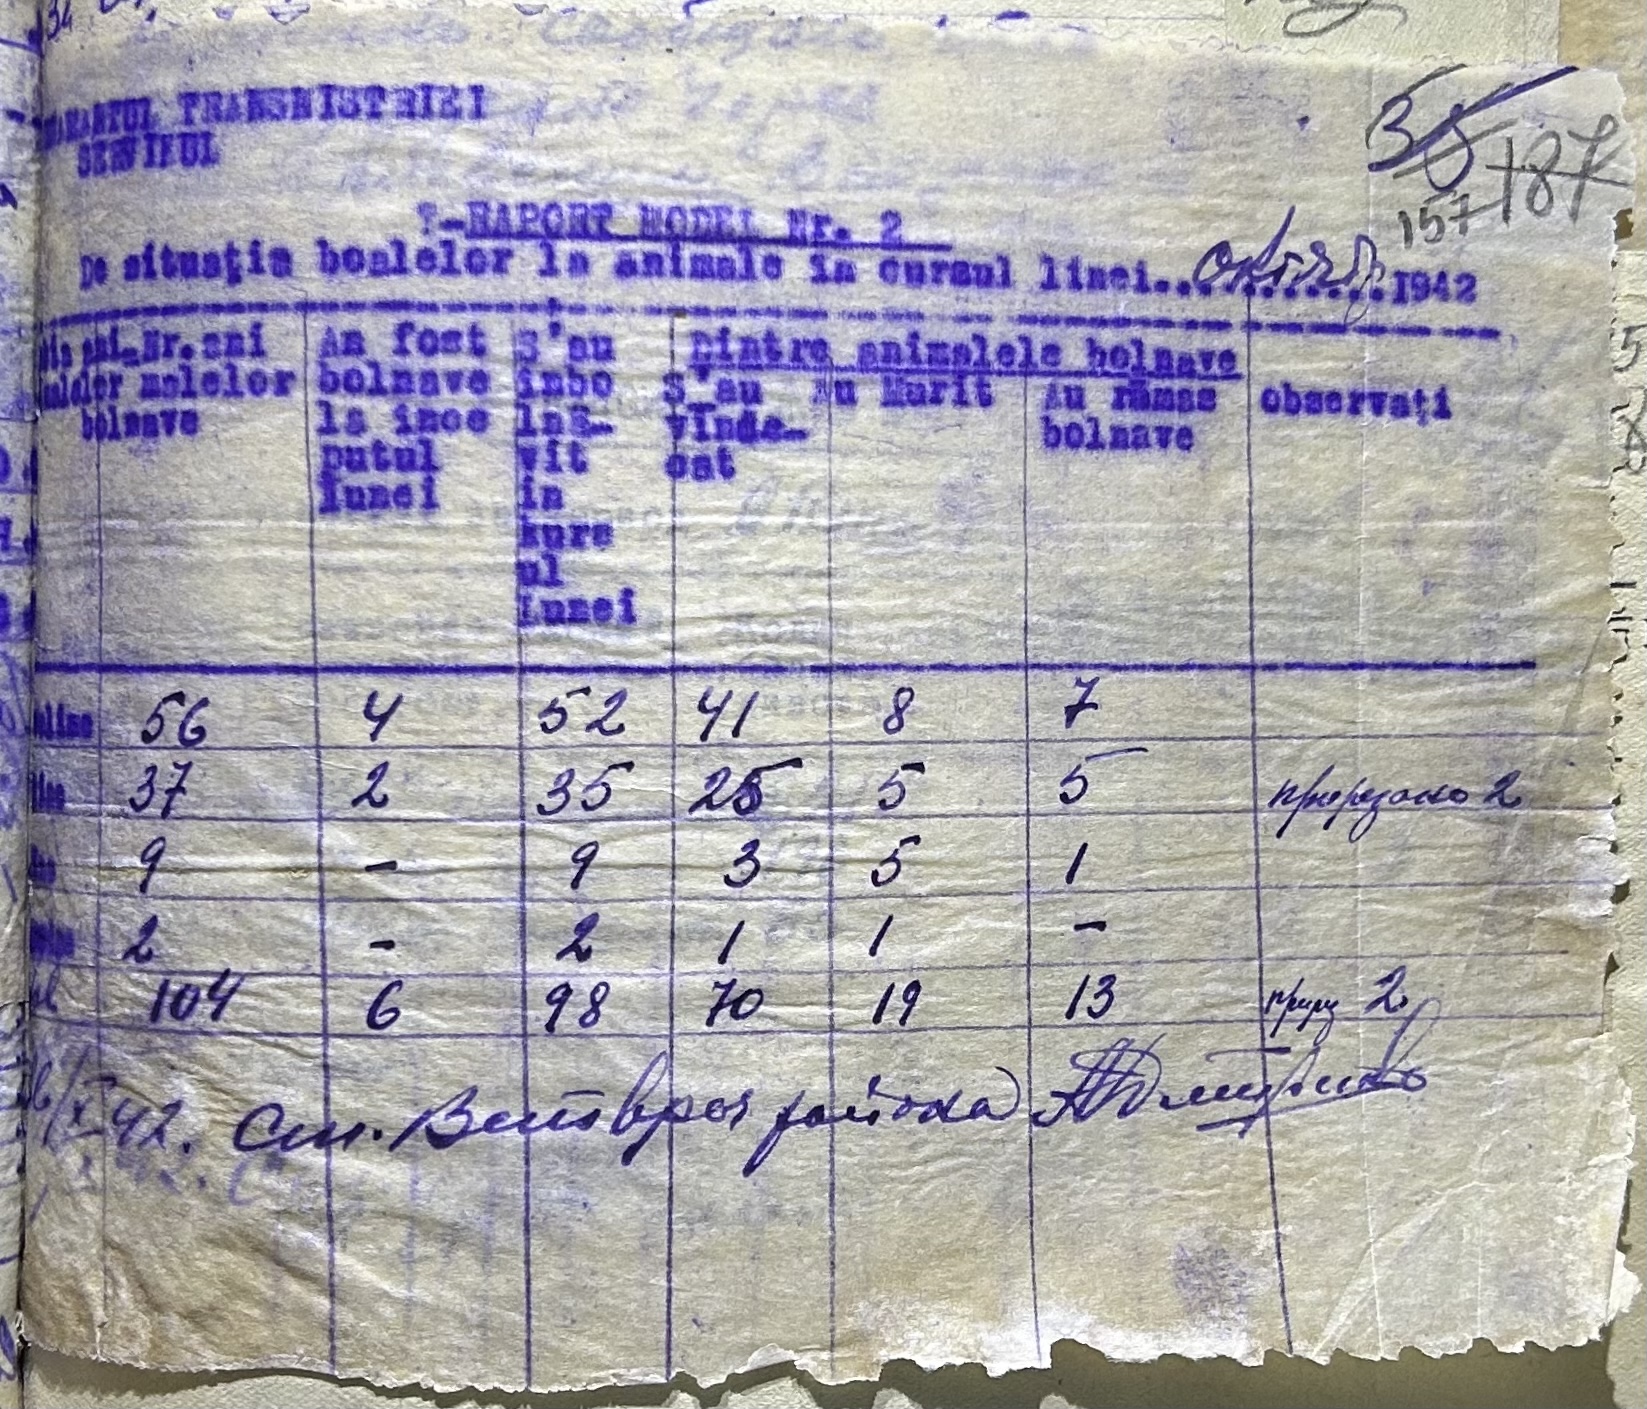 TRANSNISTRIEI
SERVIRUL
35 187
157
T-RAPORT MODEL Nr. 2
De situaţia boalelor la animale in cursul linei............1942
Nr. ani malelor bolnave
Au fost bolnave la ince putul lunei
S'au inbo lnă- vit in kurs ul Lunei
Dintre animalele bolnave
S'au vînde- cat
Au Murit
Au rămas bolnave
observaţi
56 4 52 41 8 7
37 2 35 25 5 5 прирезано 2
9 - 9 3 5 1
2 - 2 1 1 -
104 6 98 70 19 13 прирз 2
42. Ст. Ветврач района